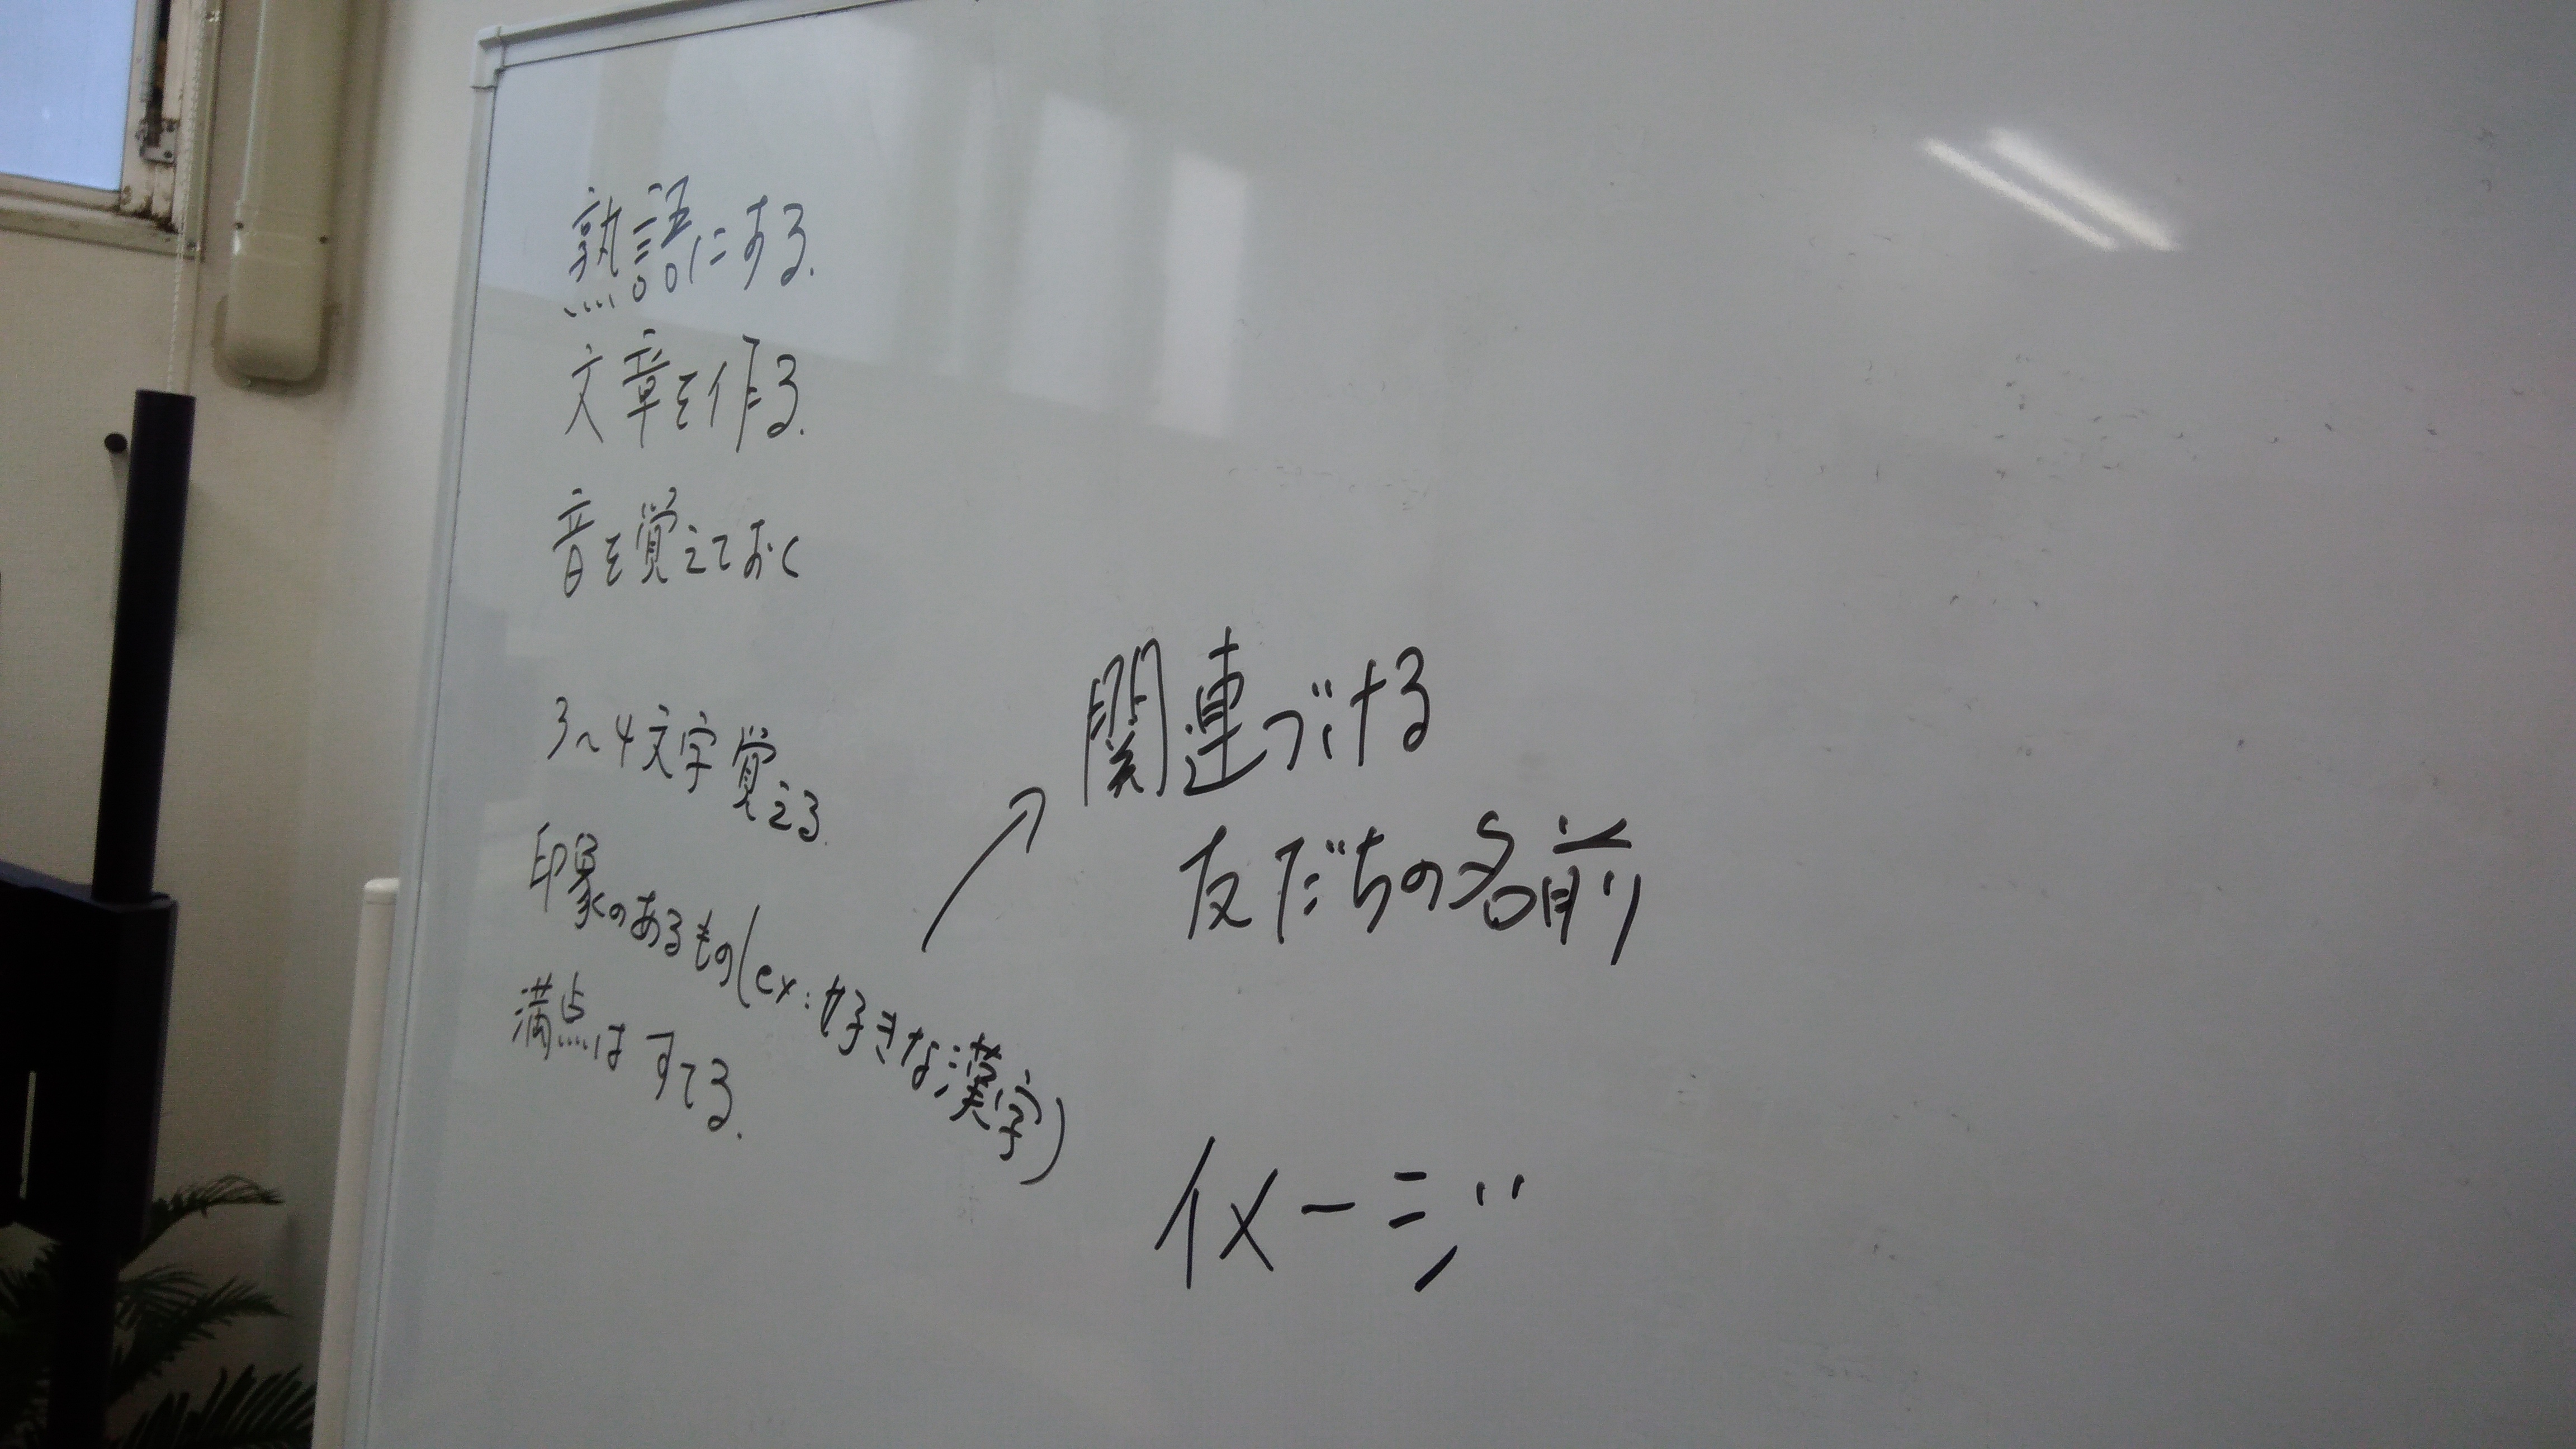 熟語にする.
文章を作る.
音を覚えておく
3〜4文字覚える
印象のあるもの(ex:好きな漢字)
満点はすてる.
関連づける
友だちの名前
イメージ